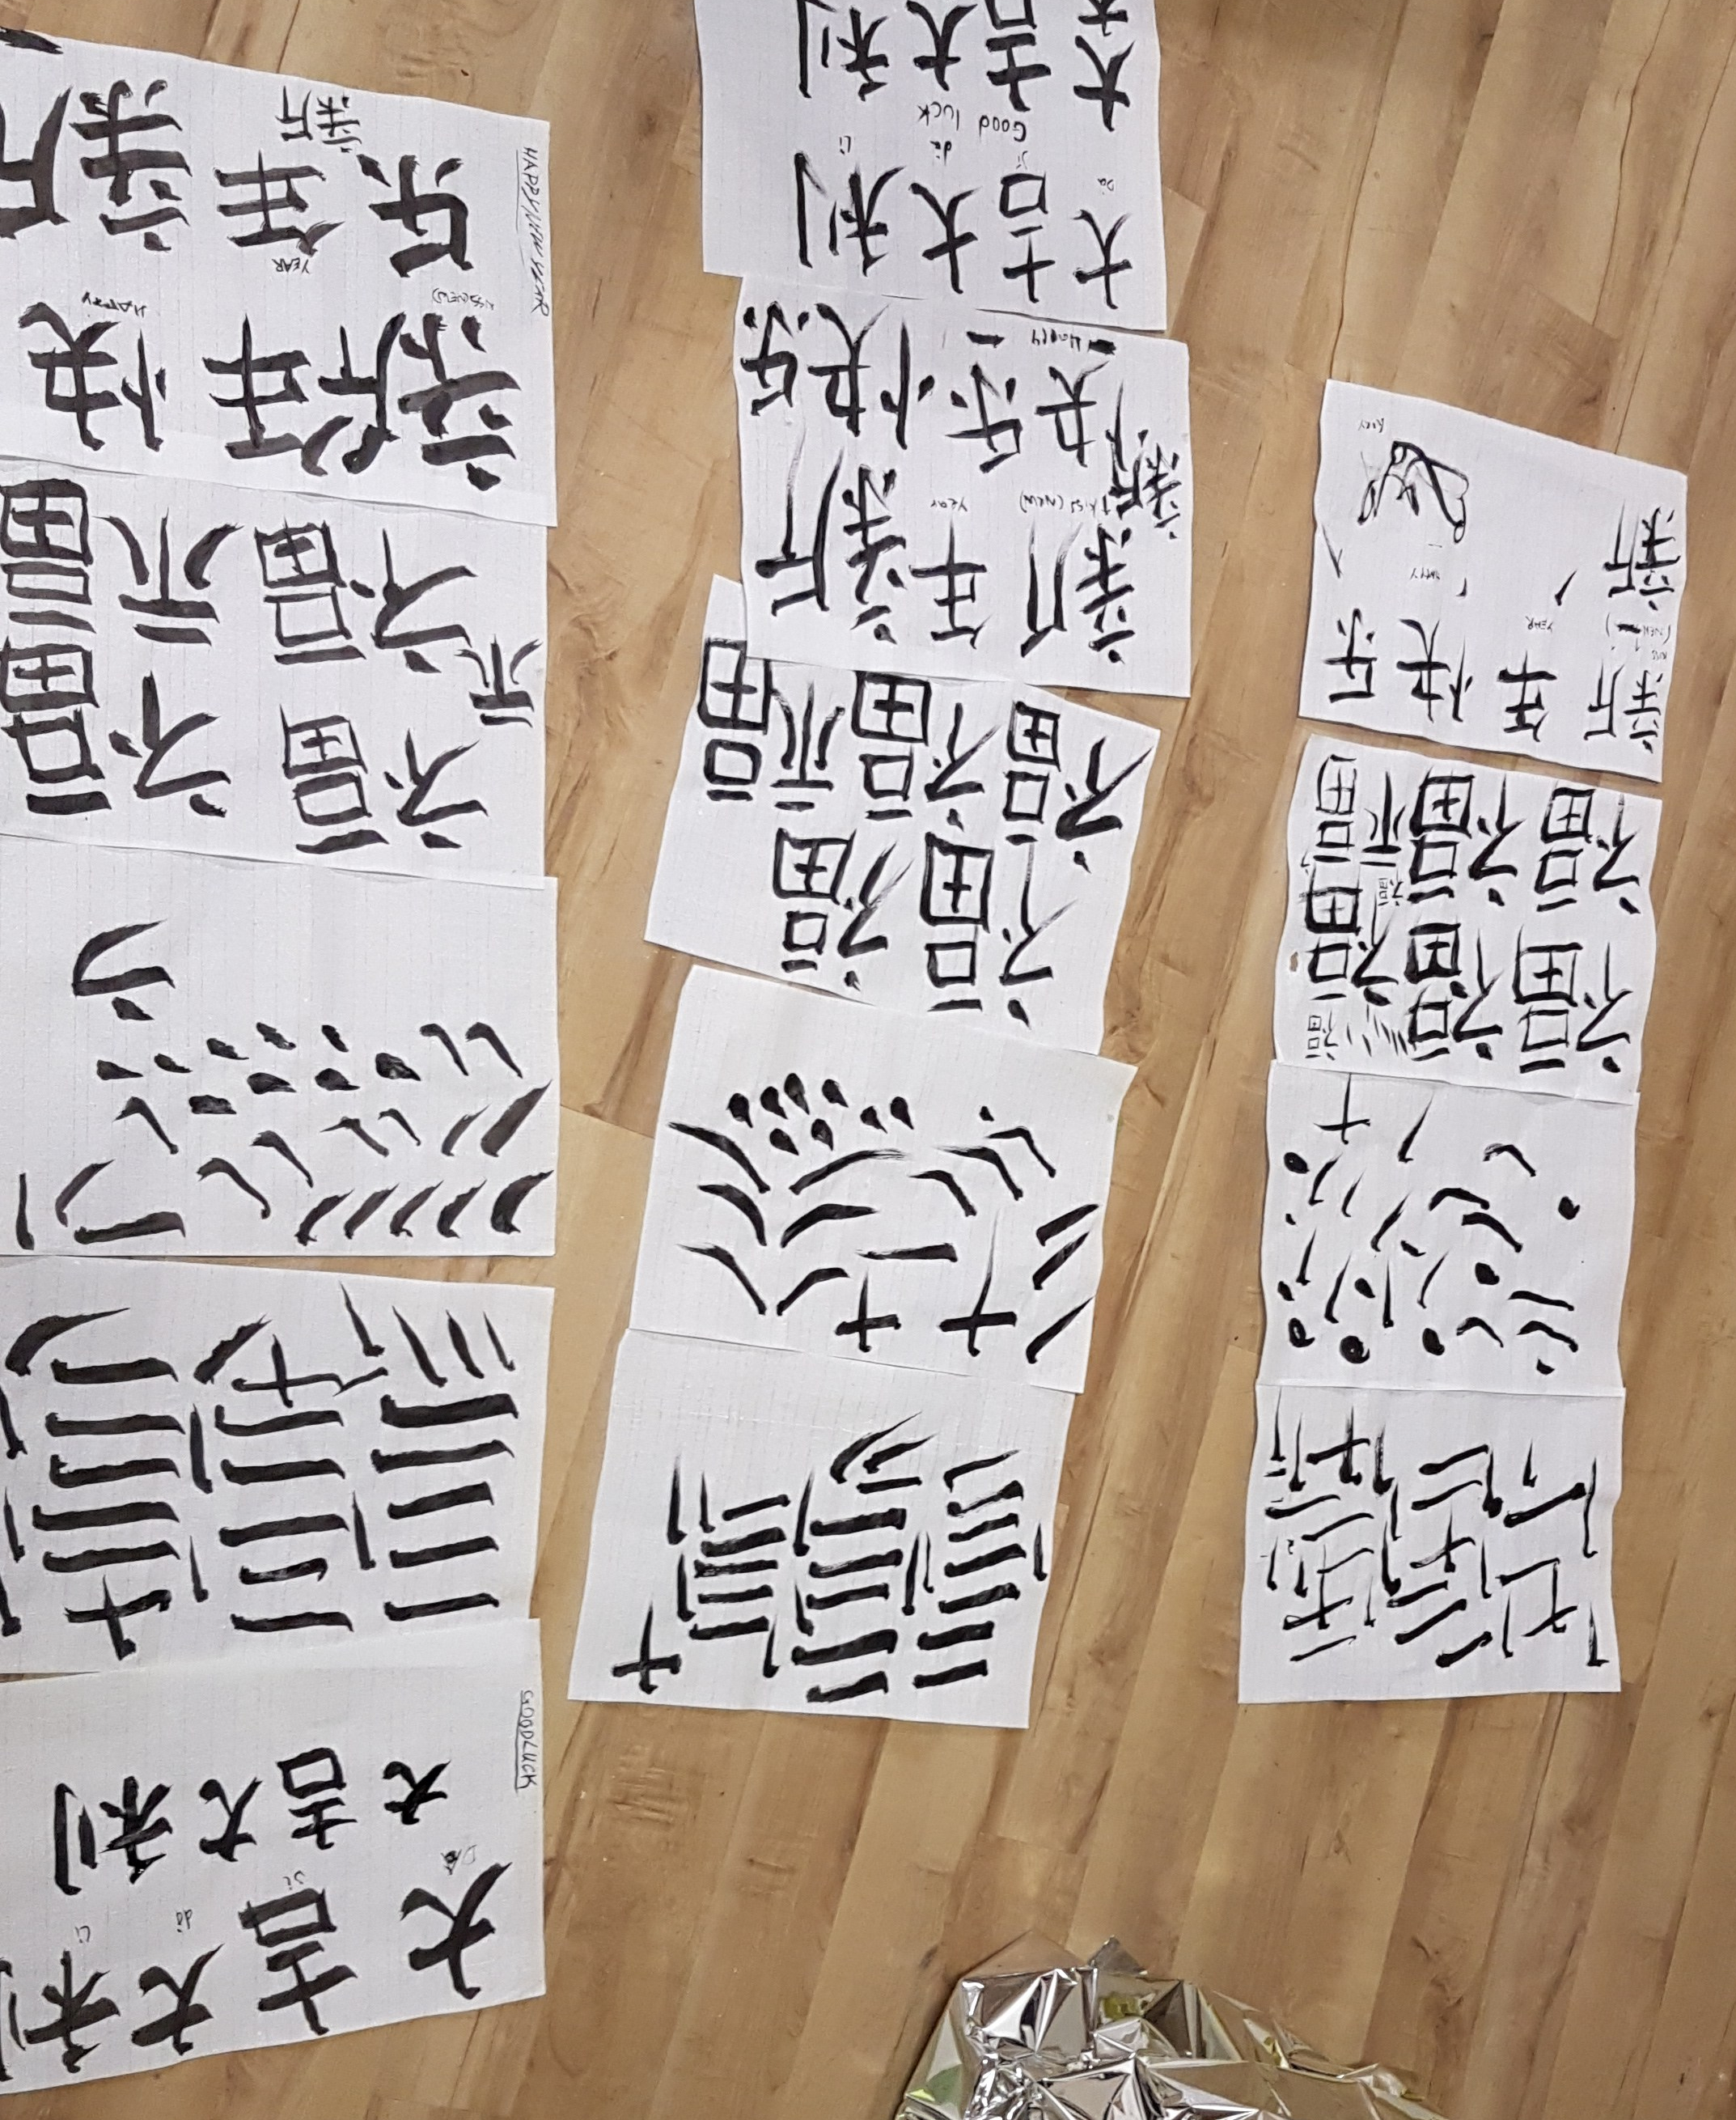 HAPPY NEW YEAR
新 年 快
KISS (NEW)
HAPPY
乐 年 新
YEAR
新
福 福
福 福
礻
GOOD LUCK
大 吉 大 利
Dà jí dà Lì
大 吉 大 利
大 吉 大 利
Dà jí dà Lì
Good luck
大 吉 大 利
新 年 新
新
KISS (NEW)
YEAR
快 乐 快 乐
HAPPY
福 福
福 福 福
新 年 快 乐
KISS (NEW)
YEAR
新
RORY
福 福 福 福
福 福 福 福